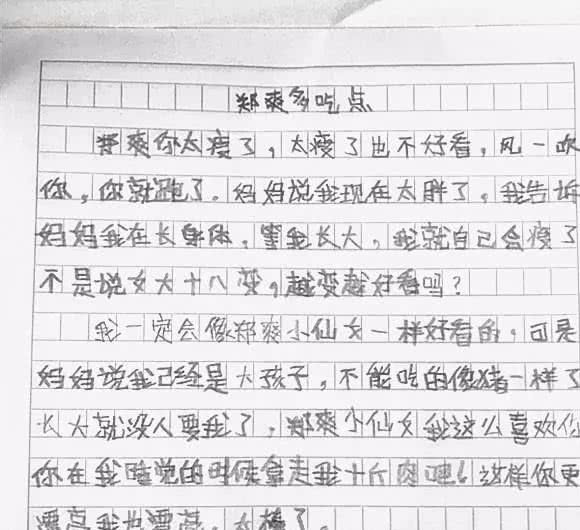 郑爽多吃点
郑爽你太瘦了，太瘦了也不好看，风一吹
你，你就跑了。妈妈说我现在太胖了。我告诉
妈妈我在长身体，等我长大，我就自己会瘦了
不是说女大十八变，越变越好看吗？
我一定会像郑爽小仙女一样好看的，可是
妈妈说我已经是大孩子，不能吃的像猪一样了
长大就没人要我了，郑爽小仙女我这么喜欢你
你在我睡觉的时候拿走我十斤肉吧！这样你更
漂亮我也漂亮，太棒了。